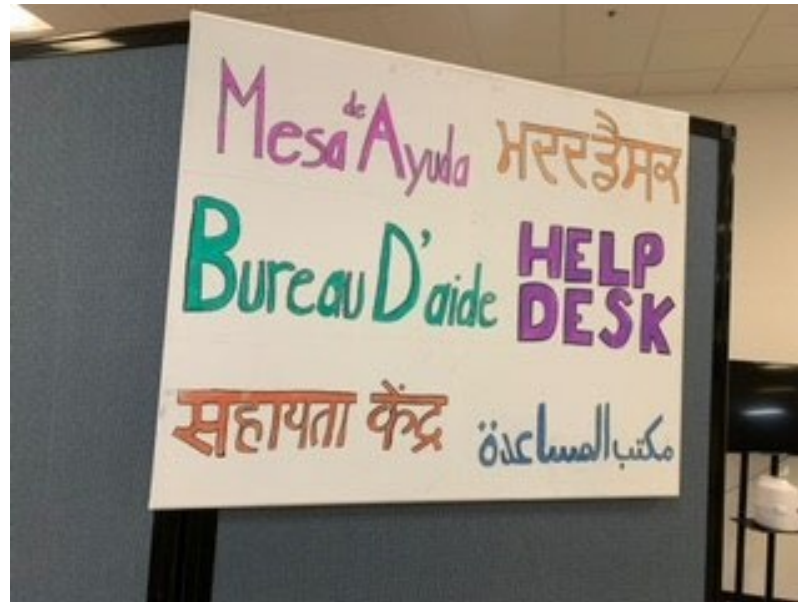 Mesa de Ayuda
ਮਦਦਡੈਸਕ
Bureau D'aide
HELP
DESK
सहायता केंद्र
مكتب المساعدة